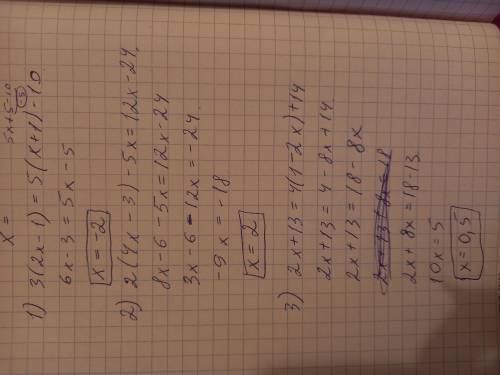 x =
5x+5-10
-5
1) 3(2x-1)=5(x+1)-10
6x-3=5x-5
x=-2
2) 2(4x-3)-5x=12x-24
8x-6-5x=12x-24
3x-6-12x=-24
-9x=-18
x=2
3) 2x+13=4(1-2x)+14
2x+13=4-8x+14
2x+13=18-8x
2x+8x=18-13
10x=5
x=0,5